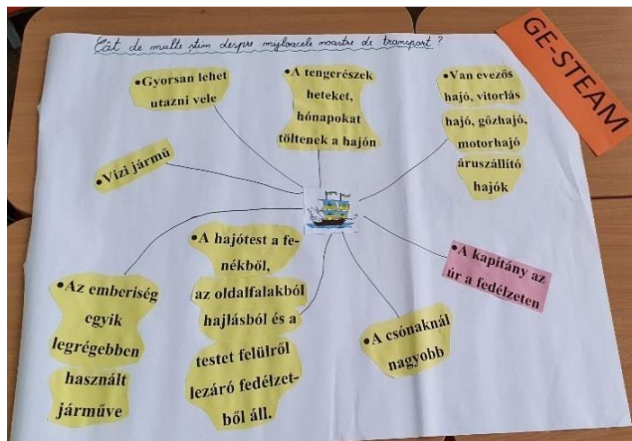 Cât de multe știm despre mijloacele noastre de transport?
GE-STEAM
•Gyorsan lehet
utazni vele
•A tengerészek
heteket,
hónapokat
töltenek a hajón
•Van evezős
hajó, vitorlás
hajó, gőzhajó,
motorhajó
áruszállító
hajók
•Vízi jármű
•A kapitány az
úr a fedélzeten
•Az emberiség
egyik
legrégebben
használt
járműve
•A hajótest a fe-
nékből,
az oldalfalakból
hajlásból és a
testet felülről
lezáró fedélzet-
ből áll.
•A csónaknál
nagyobb